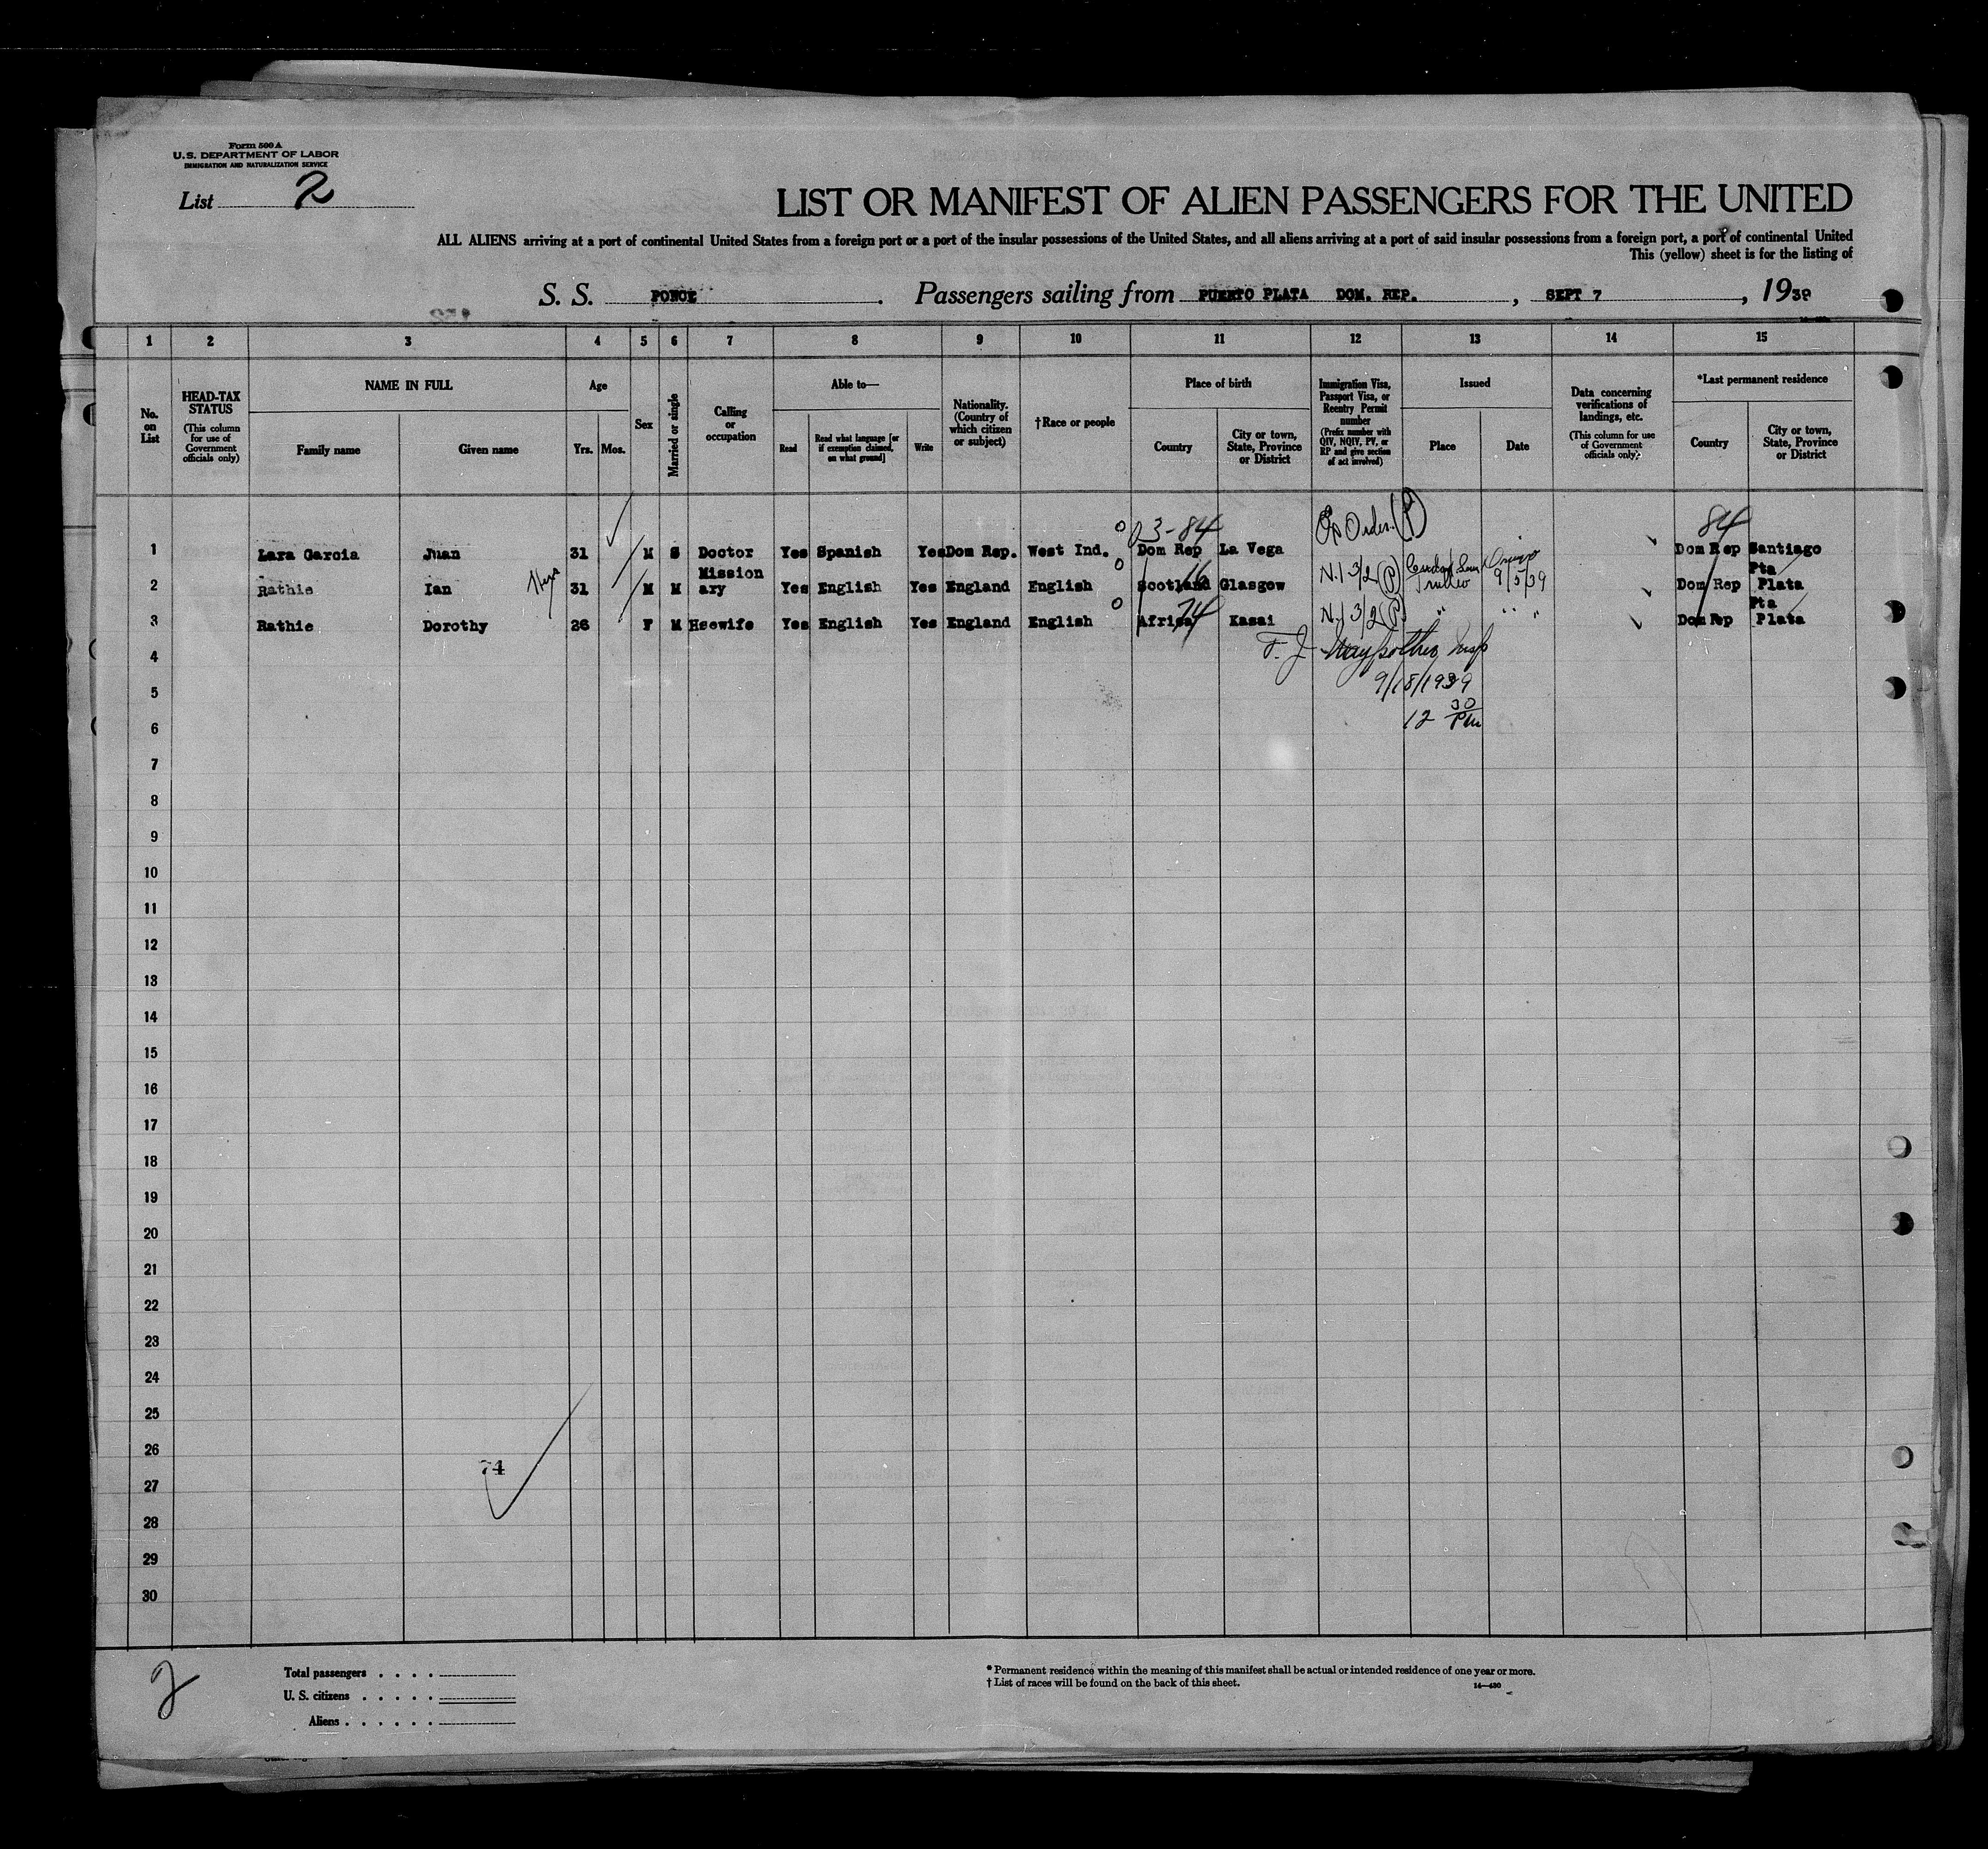 Form 500 A
U.S. DEPARTMENT OF LABOR
IMMIGRATION AND NATURALIZATION SERVICE
List 2
LIST OR MANIFEST OF ALIEN PASSENGERS FOR THE UNITED
ALL ALIENS arriving at a port of continental United States from a foreign port or a port of the insular possessions of the United States, and all aliens arriving at a port of said insular possessions from a foreign port, a port of continental United
This (yellow) sheet is for the listing of
S. S. PONCE . Passengers sailing from PUERTO PLATA DOM. REP. , SEPT 7 , 1939
1 2 3 4 5 6 7 8 9 10 11 12 13 14 15
No. on List
HEAD-TAX STATUS
(This column for use of Government officials only)
NAME IN FULL
Family name Given name
Age
Yrs. Mos.
Sex
Married or single
Calling or occupation
Able to—
Read
Read what language [or if exemption claimed, on what ground]
Write
Nationality. (Country of which citizen or subject)
†Race or people
Place of birth
Country
City or town, State, Province or District
Immigration Visa, Passport Visa, or Reentry Permit number
(Prefix number with QIV, NQIV, PV, or RP and give section of act involved)
Issued
Place Date
Data concerning verifications of landings, etc.
(This column for use of Government officials only)
*Last permanent residence
Country
City or town, State, Province or District
3-84 84
1 Lara Garcia Juan 31 M S Doctor Yes Spanish Yes Dom Rep. West Ind. Dom Rep La Vega Order (P) Dom Rep Santiago
2 Rathie Ian 31 M M Missionary Yes English Yes England English Scotland 16 Glasgow 3/2 (P) Trujillo 9/5/39 Dom Rep Pta Plata
3 Rathie Dorothy 26 F M Hsewife Yes English Yes England English Africa 74 Kasai 3/2 (P) " " " Dom Rep Pta Plata
4 F. J.
5 9/18/1939
6 12 30 PM
7
8
9
10
11
12
13
14
15
16
17
18
19
20
21
22
23
24
25
26
74
27
28
29
30
2
Total passengers . . . .
U. S. citizens . . . . .
Aliens . . . . . .
* Permanent residence within the meaning of this manifest shall be actual or intended residence of one year or more.
† List of races will be found on the back of this sheet.
14—430